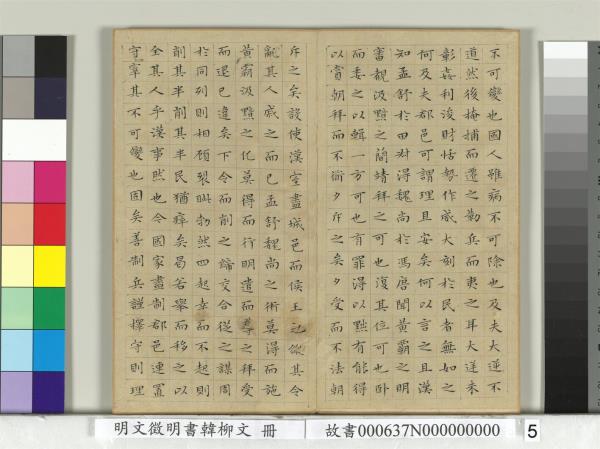 不可變也國人雖病不可除也及夫大逆不
道然後掩捕而遷之勒兵而夷之耳大逆未
彰姦利浚財怙勢作威大刻於民者無如之
何及夫郡邑可謂理且安矣何以言之且漢
知孟舒於田叔得魏尚於馮唐聞黃霸之明
審覩汲黯之簡靖拜之可也復其位可也臥
而委之以輯一方可也有罪得以黜有能得
以賞朝拜而不道夕斥之矣夕受而不法朝
斥之矣設使漢室盡城邑而侯王之縱其令
亂其人戚之而已孟舒魏尚之術莫得而施
黃霸汲黯之化莫得而行明遣而導之拜受
而退已違矣下令而削之締交合從之謀周
於同列則相顧裂眥勃然四起幸而不起則
削其半削其半民猶瘁矣曷若舉而移之以
全其人乎漢事然也今國家盡制郡邑連置
守宰其不可變也固矣善制兵謹擇守則理
明文徵明書韓柳文 冊
故書000637N000000000
5